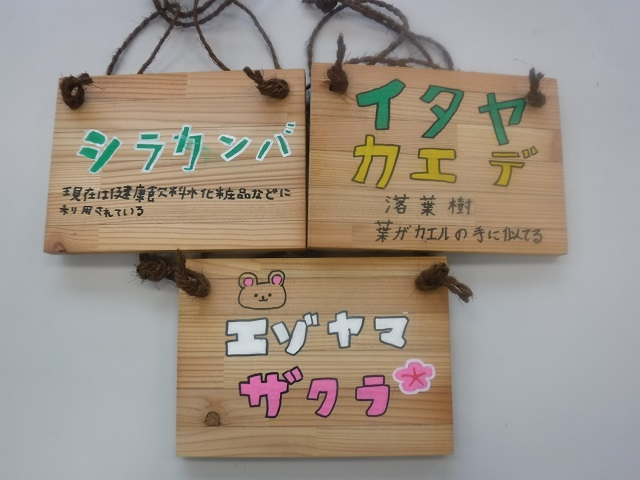 シラカンバ
現在は健康飲料水化粧品などに
利用されている
イタヤ
カエデ
落葉樹
葉がカエルの手に似てる
エゾヤマ
ザクラ